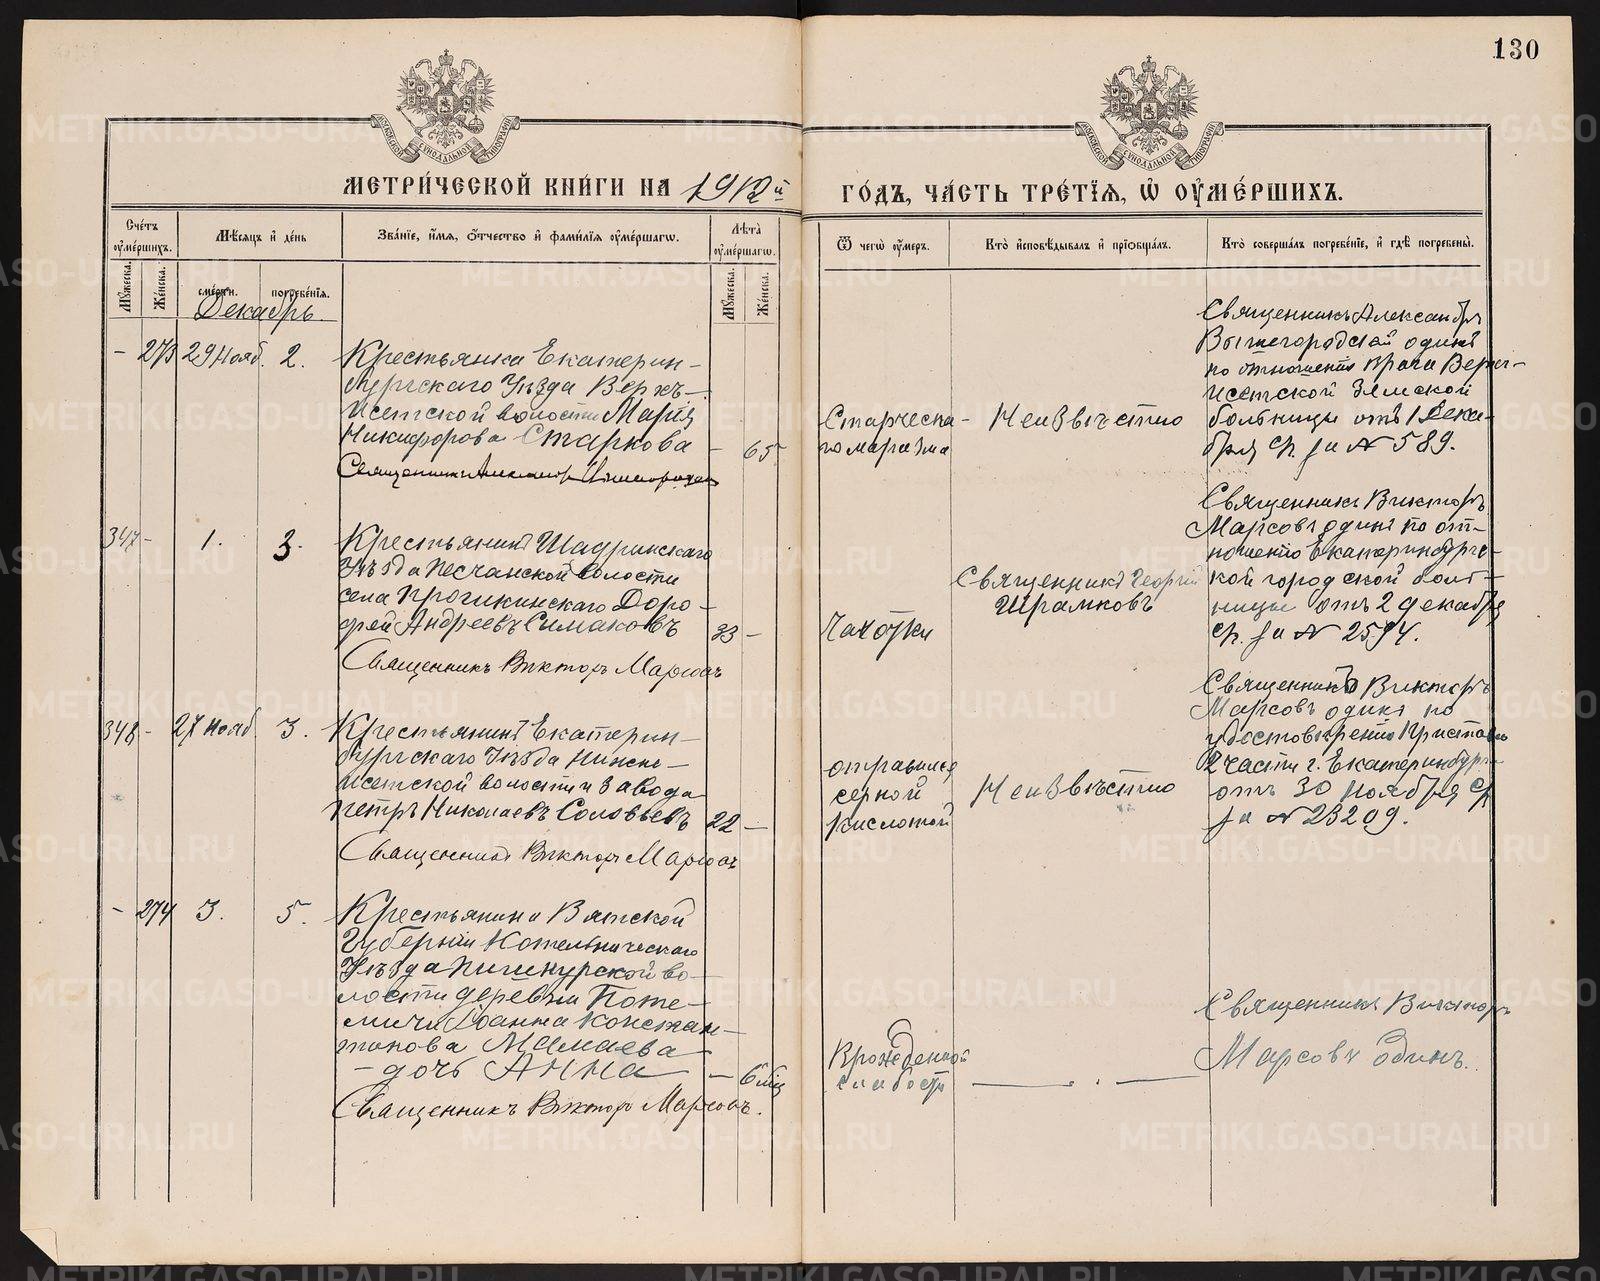 130
МОСКОВСКОЙ СѴНОДАЛЬНОЙ ТИПОГРАФІИ
МОСКОВСКОЙ СѴНОДАЛЬНОЙ ТИПОГРАФІИ
МЕТРИ́ЧЕСКОЙ КНИ́ГИ НА 1912й ГО́ДЪ, ЧА́СТЬ ТРЕ́ТЇѦ, Ѡ҆ ОУ҆МЕ́РШИХЪ.
Сче́тъ оу҆ме́ршихъ.
Мѣ́сѧцъ и҆ де́нь
Зва́нїе, и҆́мѧ, ѻ҆́тчество и҆ фами́лїѧ оу҆ме́ршагѡ.
Лѣ̀та̀ оу҆ме́ршагѡ.
Ѿ чегѡ̀ оу҆́меръ.
Кто̀ и҆сповѣ́дывалъ и҆ прїѡбща́лъ.
Кто̀ соверша́лъ погребе́нїе, и҆ гдѣ̀ погребены̀.
Мꙋ́жеска.
Же́нска.
сме́рти.
погребе́нїѧ.
Мꙋ́жеска.
Же́нска.
Декабрь.
– 273 29 Нояб. 2.
Крестьянка Екатерин-
бургскаго Уѣзда Верхъ-
Исетской волости Марія
Никифорова Старкова – 65
Старческа-
го маразма
Неизвѣстно
Священникъ Александръ
Вышегородскій одинъ
по отношенію врача Верхъ-
исетской Земской
больницы отъ 1 Дека-
бря ср. за № 589.
347 – 1. 3.
Крестьянинъ Шадринскаго
Уѣзда Песчанской волости
села Крогикинскаго Доро-
фей Андреевъ Симаковъ 33 –
Священникъ Викторъ Марсовъ
Чахотки
Священникъ Георгій
Шрамковъ
Священникъ Викторъ
Марсовъ одинъ по от-
ношенію Екатеринбургс-
кой городской боль-
ницы отъ 2 декабря
ср. за № 2594.
348 – 27 Нояб. 3.
Крестьянинъ Екатерин-
бургскаго Уѣзда Нижне-
Исетской волости и завода
Петръ Николаевъ Соловьевъ 22 –
Священникъ Викторъ Марсовъ
отравился
серной
кислотой
Неизвѣстно
Священникъ Викторъ
Марсовъ одинъ по
удостовѣренію Пристава
2 части г. Екатеринбурга
отъ 30 ноября ср
за № 23209.
– 274 3. 5.
Крестьянина Вятской
Губерніи Котельническаго
Уѣзда волости деревни
Іоанна Констан-
тинова Мамаева
– дочь Анна – 6 мѣс
Священникъ Викторъ Марсовъ.
Врожденной
слабости
Священникъ Викторъ
Марсовъ одинъ.
METRIKI.GASO-URAL.RU